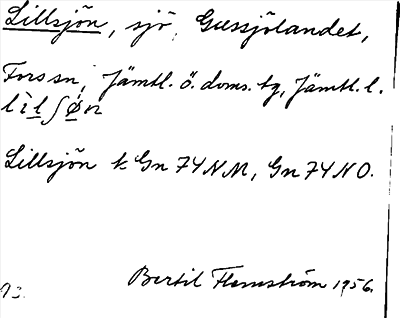 Lillsjön, sjö, Gussjölandet,
Fors sn, Jämtl. ö. doms. tg, Jämtl. l.
Lillsjön k Gn 74 NM, Gn 74 NO.
Bertil Flemström 1956.